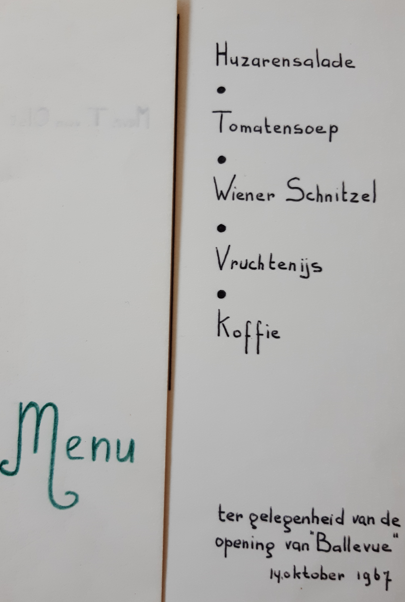 Menu
Huzarensalade
•
Tomatensoep
•
Wiener Schnitzel
•
Vruchtenijs
•
Koffie
ter gelegenheid van de
opening van "Ballevue"
14 oktober 1967